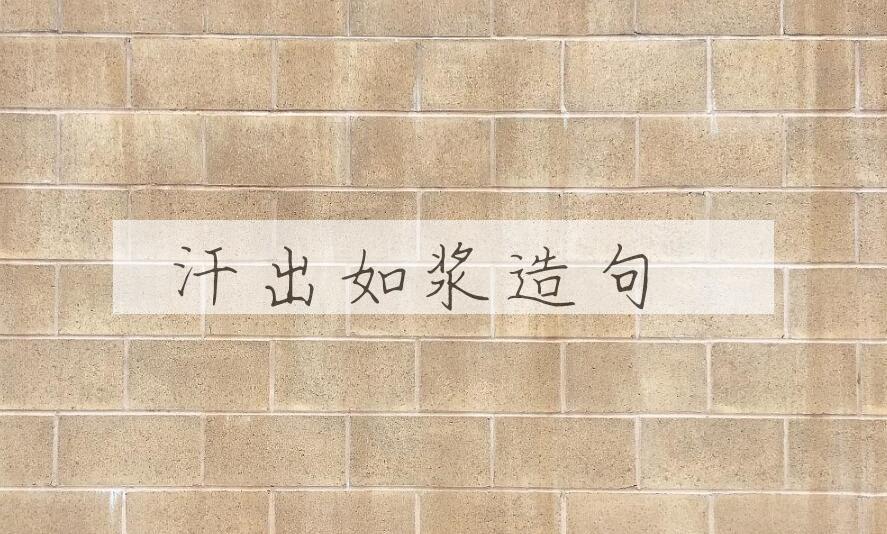 汗出如浆造句